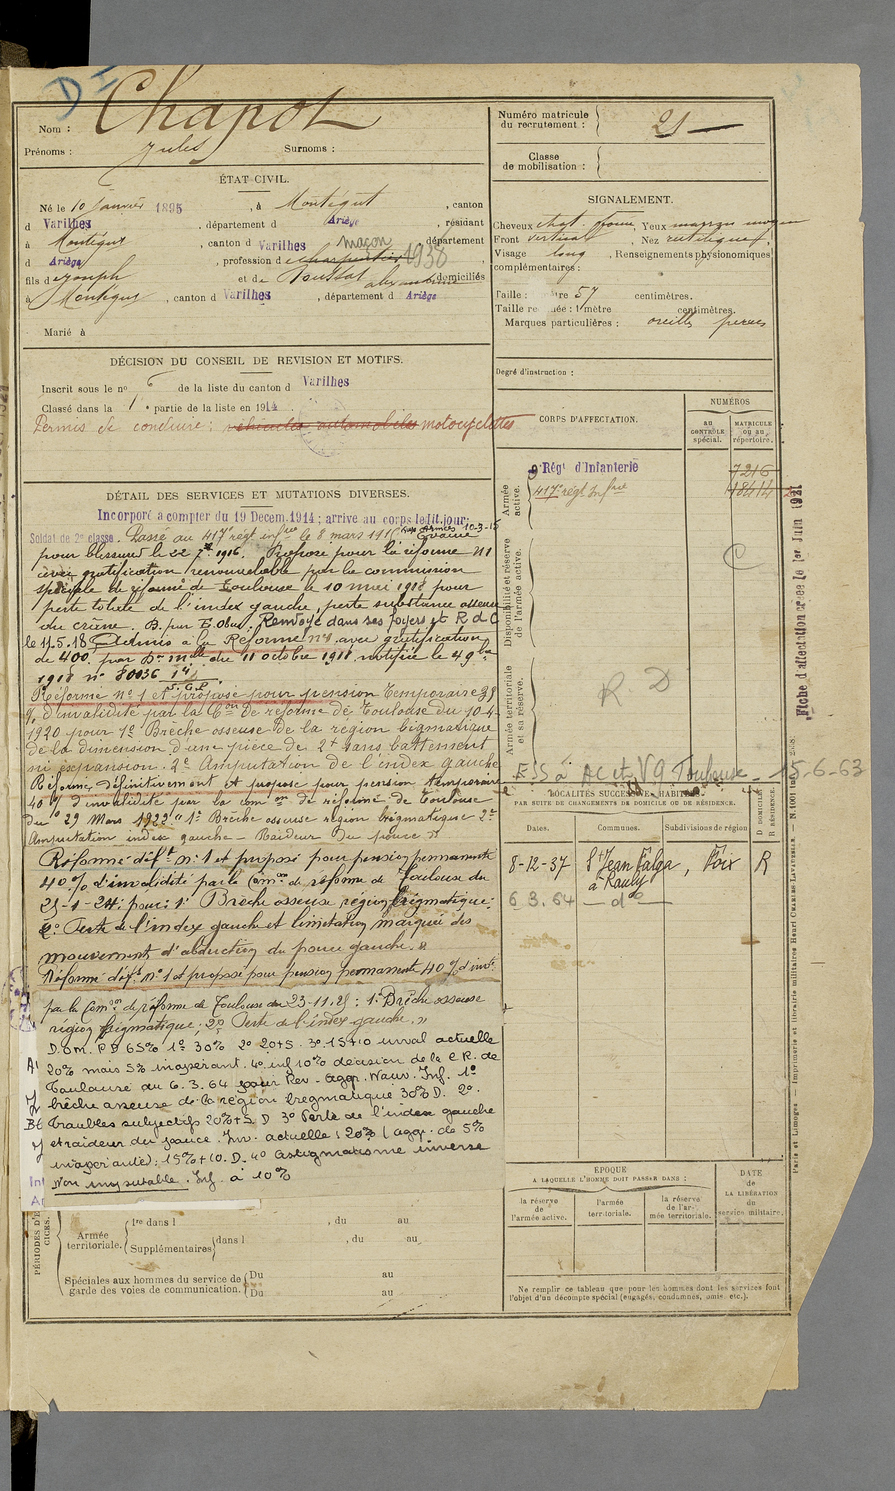 D I
Nom : Chapot
Prénoms : Jules Surnoms :
Numéro matricule du recrutement : 21
Classe de mobilisation :
ÉTAT CIVIL.
Né le 10 Janvier 1895, à Montégut, canton
d Varilhes, département d Ariège, résidant
à Montégut, canton d Varilhes, département
d Ariège, profession d charpentier maçon 1938
fils d Joseph et de Roussat alexandrine domiciliés
à Montégut, canton d Varilhes, département d Ariège
Marié à
SIGNALEMENT.
Cheveux chat. Yeux
Front vertical, Nez rectiligne,
Visage long, Renseignements physionomiques
complémentaires :
Taille : mètre 57 centimètres.
Taille re née : 1 mètre centimètres.
Marques particulières : oreilles percées
Degré d'instruction :
DÉCISION DU CONSEIL DE REVISION ET MOTIFS.
Inscrit sous le nº 6 de la liste du canton d Varilhes
Classé dans la 1e partie de la liste en 1914
Permis de conduire : véhicules automobiles motocyclettes
DÉTAIL DES SERVICES ET MUTATIONS DIVERSES.
Incorporé à compter du 19 Décem. 1914 ; arrivé au corps le dit jour;
Soldat de 2e classe. Passé au 417e régt infrie le 8 mars 191 aux Armées 10-3-15 Évacué
pour blessure le 22 7bre 1916. Proposé pour la réforme N1
avec gratification renouvelable par la commission
spéciale de réforme de Toulouse le 10 mai 1918 pour
perte totale de l'index gauche, perte substance osseuse
du crâne. B. par E. Obus. Renvoyé dans ses foyers et R d C
le 11.5.18 Admis à la Réforme nº1 avec gratification
de 400 par Don Mlle du 11 octobre 1918 notifiée le 4 9bre
1918 nº 80036
Réformé Nº 1 et proposé pour pension temporaire 35
% d'invalidité par la Con de réforme de Toulouse du 10-4-
1920 pour 1º Brèche osseuse de la région bregmatique
de la dimension d'une pièce de 2f sans battement
ni expansion. 2º Amputation de l'index gauche
Réformé définitivement et proposé pour pension temporaire
40 % d'invalidité par la comon de réforme de Toulouse
du 29 Mars 1922 "1º Brèche osseuse région bregmatique 2º
Amputation index gauche - Raideur du pouce"
Réformé déft nº 1 et proposé pour pension permanente
40 % d'invalidité par la Comon de réforme de Toulouse du
25-1-24: pour: 1º Brèche osseuse région bregmatique.
2º Perte de l'index gauche et limitation marquée des
mouvements d'abduction du pouce gauche."
Réformé déft Nº 1 et proposé pour pension permanente 40 % d'invté
par la Comon de réforme de Toulouse du 23-11-25 : 1º Brèche osseuse
région bregmatique, 2º Perte de l'index gauche."
D.O.M. P.D 65% 1º 30% 2º 20+5. 3º 15+10 inval actuelle
20% mais 5% inopérant. 4º inf 10% décision de la C.R. de
Toulouse du 6.3.64 pour Rev - Aggr. Nouv. Inf. 1º
brèche osseuse de la région bregmatique 30% D. 2º.
Troubles subjectifs 20%+5 D 3º Perte de l'index gauche
et raideur du pouce. Inv. actuelle : 20% (agg. de 5%
inopérante) : 15%+10. D. 4º Astigmatisme inverse
Non imputable. Inf. à 10%
CORPS D'AFFECTATION.
NUMÉROS
au CONTRÔLE spécial.
MATRICULE ou au répertoire.
Armée active.
9e Régt d'Infanterie 7216
417e régt Infrie 18414
Disponibilité et réserve de l'armée active.
C
Armée territoriale et sa réserve.
R D
E.S à AC et VG Toulouse - 15-6-63
LOCALITÉS SUCCESSIVES HABITÉES
PAR SUITE DE CHANGEMENTS DE DOMICILE OU DE RÉSIDENCE.
Dates. Communes. Subdivisions de région D DOMICILE R RÉSIDENCE.
8-12-37 St Jean Falga, Foix R
6 3. 64 — dº —
ÉPOQUE
A LAQUELLE L'HOMME DOIT PASSER DANS :
la réserve de l'armée active.
l'armée territoriale.
la réserve de l'armée territoriale.
DATE de LA LIBÉRATION du service militaire.
Ne remplir ce tableau que pour les hommes dont les services font
l'objet d'un décompte spécial (engagés, condamnés, omis. etc.).
PÉRIODES D'E
CICES.
Armée territoriale.
1re dans l , du au
Supplémentaires dans l , du au
Spéciales aux hommes du service de garde des voies de communication.
Du au
Du au
Fiche d'affectation créée le 1er Juin 1921
Paris et Limoges — Imprimerie et librairie militaires Henri CHARLES-LAVAUZELLE. — N. 1001